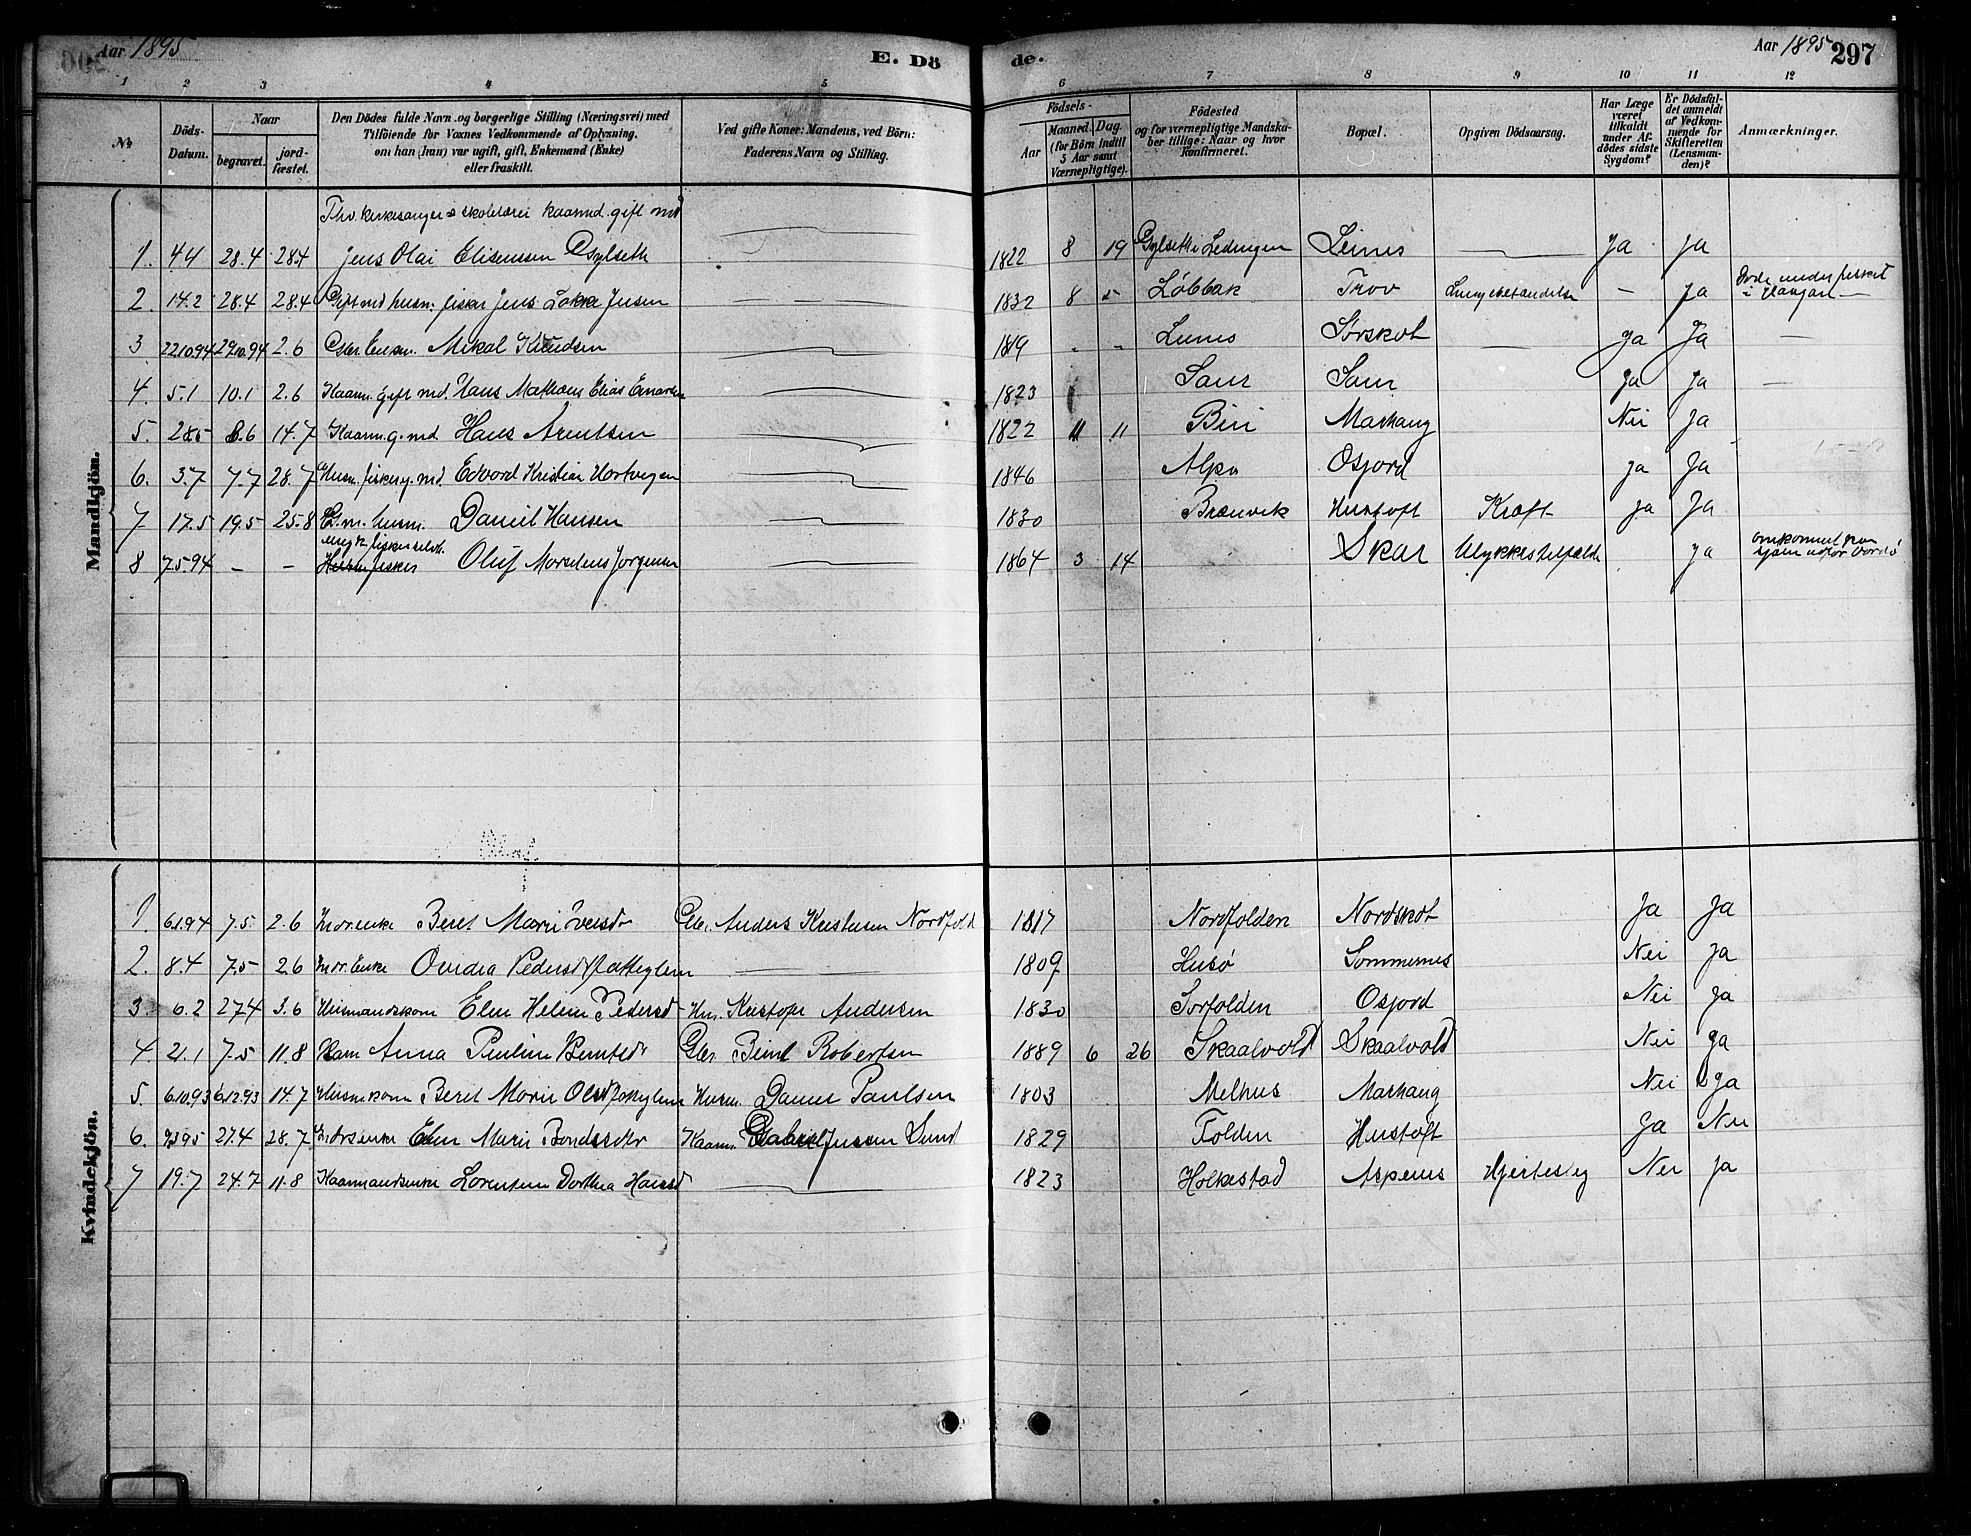 Aar 1895
E. Dö
de.
Aar 1895
297
1 2 3 4 5 6 7 8 9 10 11 12
No
Döds-Datum.
Naar
begravet.
jord-fæstet.
Den Dödes fulde Navn og borgerlige Stilling (Næringsvei) med
Tilföiende for Voxnes Vedkommende af Oplysning,
om han (hun) var ugift, gift, Enkemand (Enke)
eller fraskilt.
Ved gifte Koner: Mandens, ved Börn:
Faderens Navn og Stilling.
Födsels-
Aar
Maaned. Dag.
(for Börn indtil
5 Aar samt
Værnepligtige).
Födested
og for værnepligtige Mandska-
ber tillige: Naar og hvor
konfirmeret.
Bopæl.
Opgiven Dödsaarsag.
Har Læge
været
tilkaldt
under Af-
dödes sidste
Sygdom?
Er Dödsfal-
det anmeldt
af Vedkom-
mende for
Skifteretten
(Lensman-
den)?
Anmærkninger.
Mandkjön.
Fhv. kirkesanger & skolelærer kaarmd. gift md
1. 4.4 28.4 28.4 Jens Olai Elisenssen Gylseth 1822 8 19 Gylseth i Ledingen Leines Ja Ja
2. 14.2 28.4 28.4 Gift md husm. fisker Jens Løkke Jensen 1832 8 5 Løbbak Trov Lungebetændelse – Ja Døde under fiskeri
i
3 22.10.94 29.10.94 2.6 Mikal Knudsen 1819 " " Leines Sørskot Ja Ja
4. 5.1 10.1 2.6 Kaarm. gift md. Hans Mathæus Elias 1823 Ja Ja
5. 28.5 8.6 14.7 Kaarm. g. md Hans Arentsen 1822 11 11 Biri Markaug Nei Ja
6. 3.7 7.7 28.7 Husm. fisker g. md. Edvard Kristian Hartvigsen 1846 Osfjord Ja Ja
7 17.5 19.5 25.8 husm. Daniel Hansen 1830 Brænvik Hustoft Kræft Ja Ja
8 7.5.94 – – ungk. fisker Oluf Jørgensen 1864 3 14 Skar Ulykkestilfælde Ja omkommet paa
sjøen udfor Vardø
Kvindekjön.
1. 7.5 2.6 Inderenke Beret Marie Iversdr Gbr. Anders Kristensen Nordfold 1817 Nordfolden Nordskot Ja Ja
2. 8.4 7.5 2.6 Indr. Enke Ovidia Pedersd fattiglem 1809 Husø Sommernes Nei Ja
3 6.2 27.4 3.6 Husmandskone Elen Helene Pedersd Hus. Kristofer Andersen 1830 Sorfolden Osfjord Nei Ja
4. 21.1 7.5 11.8 Barn Anna Pauline Berntsdr Gbr. Bernt Robertsen 1889 6 26 Skaalvold Skaalvold Nei Ja
5. 6.10.93 6.12.93 14.7 Husm. kone Beret Marie Olsd fattiglem Husm. Daniel Paulsen 1803 Melhus Markaug Nei Ja
6. 27.4 28.7 Indrsenke Elen Marie Kaarm. Gabriel Jensen Lund 1829 Folden Hustoft Ja Nei
7 19.7 24.7 11.8 Kaarmandsenke Lorentsen Dorthea Hansd 1823 Holkestad Aspenes Hjertesyg Nei Ja